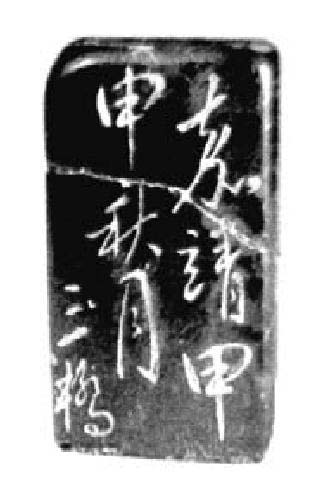 嘉靖甲
申秋月
三橋